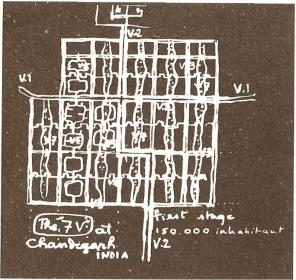 V.2
V.1
V3
V.7
V.1
V7
V6
V7
V3
V3
The "7 V"
at
Chandigarh
INDIA
first stage
150.000 inhabitant
V.2